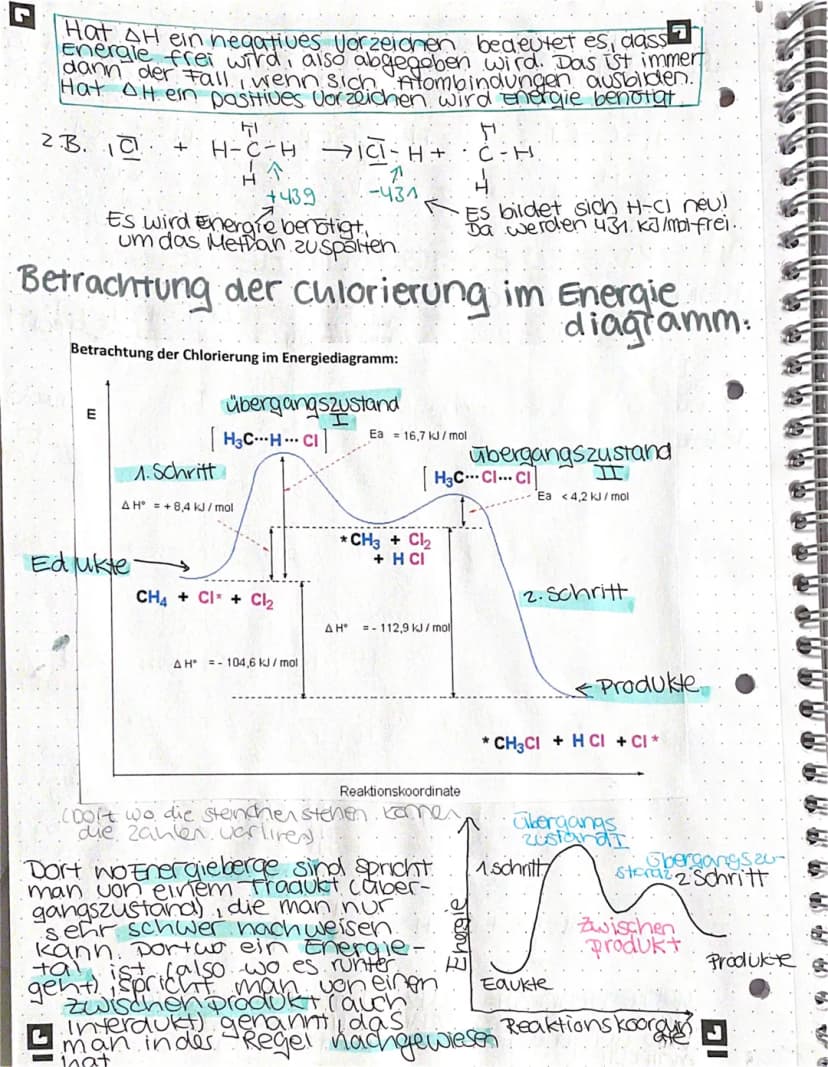 Hat ΔH ein negatives Vorzeichen, bedeutet es, dass
Energie frei wird, also abgegeben wird. Das ist immer
dann der Fall, wenn sich Atombindungen ausbilden.
Hat ΔH ein positives Vorzeichen, wird Energie benötigt
z.B. |Cl· + H-C-H → |Cl-H + ·C-H
H
H
H
H
+439
-431
Es wird Energie benötigt,
um das Methan zu spalten.
Es bildet sich H-Cl neu!
Da werden 431 KJ/mol frei.
Betrachtung der Chlorierung im Energie
diagramm:
Betrachtung der Chlorierung im Energiediagramm:
E
übergangszustand
I
[H₃C···H···Cl]
Ea = 16,7 kJ / mol
übergangszustand
II
1. Schritt
[H₃C···Cl···Cl]
Ea < 4,2 kJ / mol
Δ H° = + 8,4 kJ / mol
*CH₃ + Cl₂
+ H Cl
Edukte
CH₄ + Cl* + Cl₂
2. Schritt
Δ H° = - 112,9 kJ / mol
Δ H° = - 104,6 kJ / mol
Produkte
*CH₃Cl + H Cl + Cl*
Reaktionskoordinate
(Dort wo die sternchen stehen, können
die Zahlen
Dort wo Energieberge sind spricht
man von einem Produkt (über-
gangszustand), die man nur
sehr schwer nachweisen
kann. Dort wo ein Energie-
tal ist (also wo es runter
geht), spricht man von einen
zwischenprodukt (auch
genannt), das
man in der Regel nachgewiesen
hat
Energie
Übergangs
zustand I
1 schritt
2 Schritt
Zwischen
produkt
Produkte
Edukte